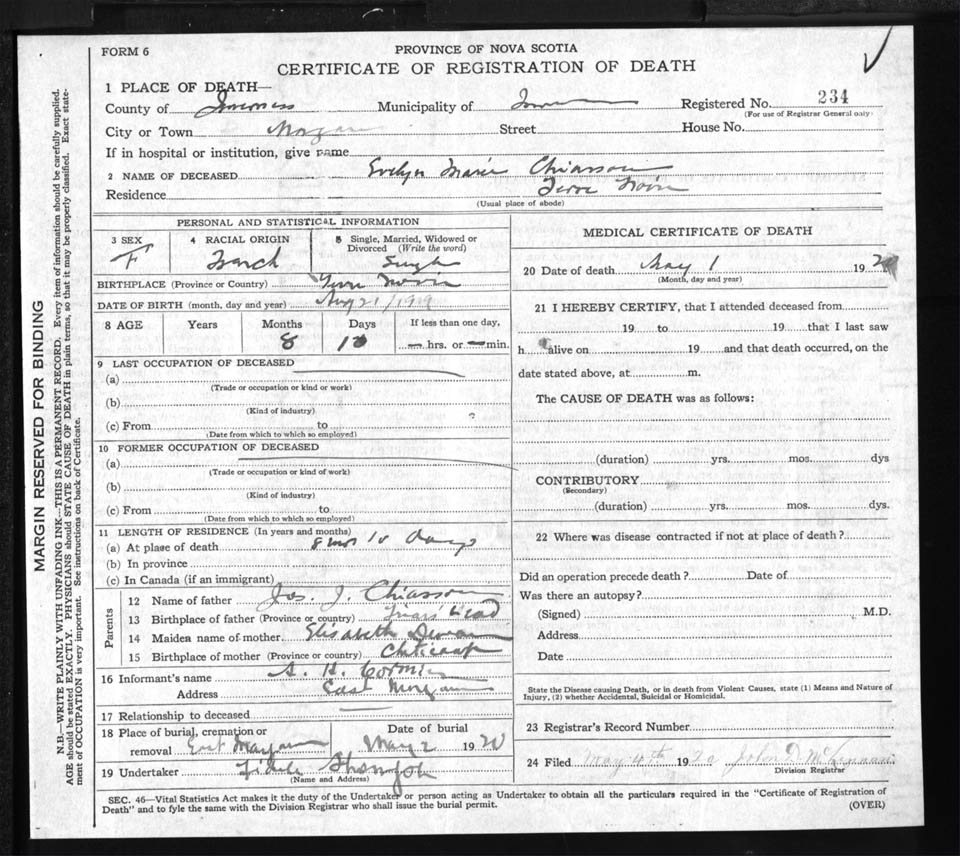 FORM 6
PROVINCE OF NOVA SCOTIA
CERTIFICATE OF REGISTRATION OF DEATH
MARGIN RESERVED FOR BINDING
N.B.—WRITE PLAINLY WITH UNFADING INK—THIS IS A PERMANENT RECORD. Every item of information should be carefully supplied.
AGE should be stated EXACTLY. PHYSICIANS should STATE CAUSE OF DEATH in plain terms, so that it may be properly classified. Exact state-
ment of OCCUPATION is very important. See instructions on back of Certificate.
1 PLACE OF DEATH—
County of Inverness Municipality of Registered No. 234
(For use of Registrar General only)
City or Town Street House No.
If in hospital or institution, give name
2 NAME OF DECEASED Evelyn Marie Chiasson
Residence Terre Noire
(Usual place of abode)
PERSONAL AND STATISTICAL INFORMATION
3 SEX F
4 RACIAL ORIGIN French
5 Single, Married, Widowed or
Divorced (Write the word)
Single
BIRTHPLACE (Province or Country) Terre Noire
DATE OF BIRTH (month, day and year) Aug 21/1919
8 AGE Years Months Days If less than one day,
8 10 — hrs. or — min.
9 LAST OCCUPATION OF DECEASED
(a)
(Trade or occupation or kind of work)
(b)
(Kind of industry)
(c) From to
(Date from which to which so employed)
10 FORMER OCCUPATION OF DECEASED
(a)
(Trade or occupation or kind of work)
(b)
(Kind of industry)
(c) From to
(Date from which to which so employed)
11 LENGTH OF RESIDENCE (In years and months)
(a) At place of death 8 mos 10 days
(b) In province
(c) In Canada (if an immigrant)
Parents
12 Name of father Jos. J. Chiasson
13 Birthplace of father (Province or country) Friars Head
14 Maiden name of mother Elisabeth
15 Birthplace of mother (Province or country) Cheticamp
16 Informant's name A. H. Cormier
Address East Margaree
17 Relationship to deceased
18 Place of burial, cremation or
removal East Margaree
Date of burial
May 2 1920
19 Undertaker
(Name and Address)
MEDICAL CERTIFICATE OF DEATH
20 Date of death May 1 1920
(Month, day and year)
21 I HEREBY CERTIFY, that I attended deceased from
19 to 19 that I last saw
h alive on 19 and that death occurred, on the
date stated above, at m.
The CAUSE OF DEATH was as follows:
(duration) yrs. mos. dys
CONTRIBUTORY
(Secondary)
(duration) yrs. mos. dys.
22 Where was disease contracted if not at place of death?
Did an operation precede death? Date of
Was there an autopsy?
(Signed) M.D.
Address
Date
State the Disease causing Death, or in death from Violent Causes, state (1) Means and Nature of
Injury, (2) whether Accidental, Suicidal or Homicidal.
23 Registrar's Record Number
24 Filed May 4th 1920 John D.
Division Registrar
SEC. 46—Vital Statistics Act makes it the duty of the Undertaker or person acting as Undertaker to obtain all the particulars required in the "Certificate of Registration of
Death" and to fyle the same with the Division Registrar who shall issue the burial permit.
(OVER)